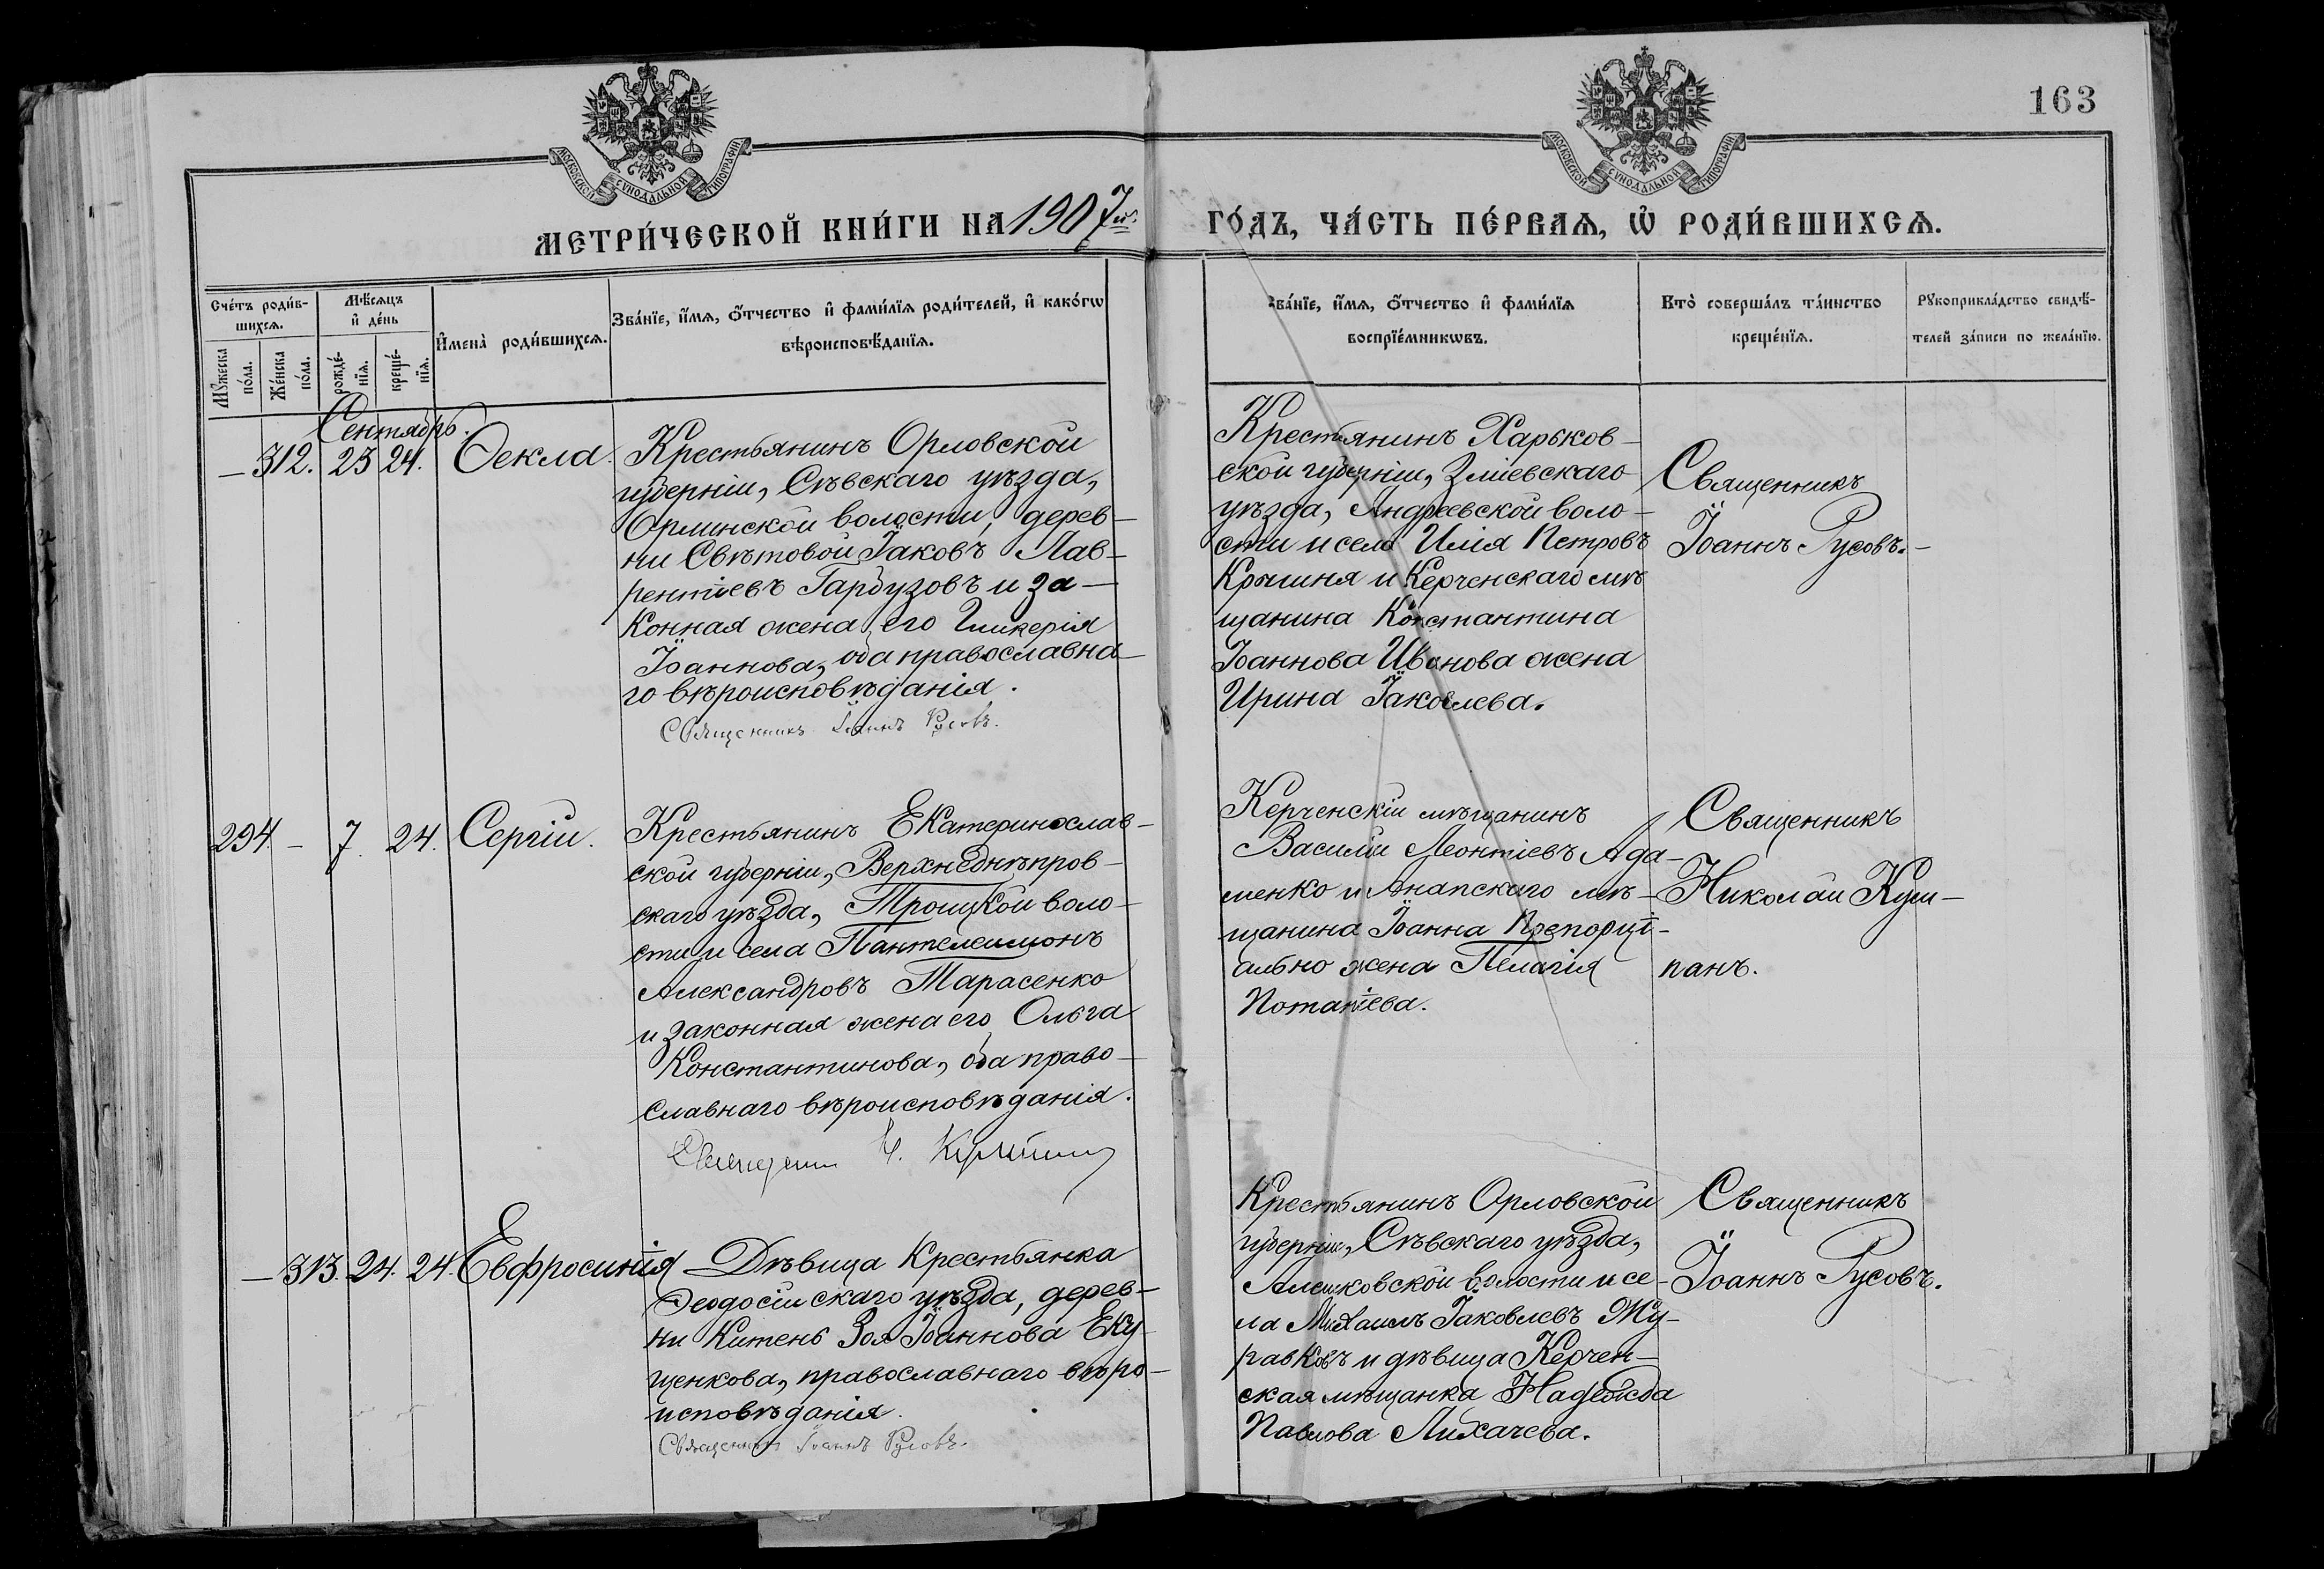 163
МОСКОВСКОЙ СѴНОДАЛЬНОЙ ТИПОГРАФІИ
МОСКОВСКОЙ СѴНОДАЛЬНОЙ ТИПОГРАФІИ
МЕТРИ́ЧЕСКОЙ КНИ́ГИ НА 1907й
ГО́ДЪ, ЧА́СТЬ ПЕ́РВАѦ, Ѡ҆ РОДИ́ВШИХСѦ.
Сче́тъ роди́в-
шихсѧ.
Мꙋ́жеска по́ла.
Же́нска по́ла.
Мѣ́сѧцъ
и҆ де́нь
рожде́-
нїѧ.
креще́-
нїѧ.
И҆мена̀ роди́вшихсѧ.
Зва́нїе, и҆́мѧ, ѻ҆́тчество и҆ фами́лїѧ роди́телей, и҆ како́гѡ
вѣроисповѣ́данїѧ.
Зва́нїе, и҆́мѧ, ѻ҆́тчество и҆ фами́лїѧ
воспрїе́мникѡвъ.
Кто̀ соверша́лъ та́инство
креще́нїѧ.
Рꙋкоприкла́дство свидѣ́-
телей за́писи по жела́нїю.
Сентябрь.
— 312. 23 24. Ѳекла.
Крестьянинъ Орловской
губерніи, Сѣвскаго уѣзда,
Орлинской волости, дерев-
ни Свѣтовой Іаковъ Лав-
рентіевъ Гарбузовъ и за-
конная жена его Гликерія
Іоаннова, оба православна-
го вѣроисповѣданія.
Священникъ Іоаннъ Русовъ.
Крестьянинъ Харьков-
ской губерніи, Зміевскаго
уѣзда, Андреевской воло-
сти и села Илія Петровъ
и Керченскаго мѣ
щанина Константина
Іоаннова Иванова жена
Ирина Іаковлева.
Священникъ
Іоаннъ Русовъ.—
294. — 7. 24. Сергій.
Крестьянинъ Екатеринослав-
ской губерніи, Верхнеднѣпров-
скаго уѣзда, Троицкой воло-
сти и села Пантелеимонъ
Александровъ Тарасенко
и законная жена его Ольга
Константинова, оба право-
славнаго вѣроисповѣданія.
Н.
Керченскій мѣщанинъ
Василій Леонтіевъ Ада-
менко и Анапскаго мѣ-
щанина Іоанна Препорці-
ально жена Пелагія
Потапіева.
Священникъ
Николай Кум-
панъ.
— 313. 24. 24. Евфросинія
Дѣвица крестьянка
Ѳеодосійскаго уѣзда, дерев-
ни Китень Зоя Іоаннова Еку-
щенкова, православнаго вѣро-
исповѣданія.
Священникъ Іоаннъ Русовъ.
Крестьянинъ Орловской
губерніи, Сѣвскаго уѣзда,
Алешковской волости и се-
ла Михаилъ Іаковлевъ Жу-
равковъ и дѣвица Керчен-
ская мѣщанка Надежда
Павлова Лихачева.
Священникъ
Іоаннъ Русовъ.